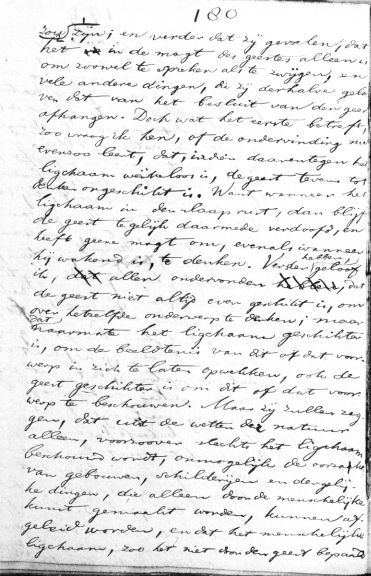 180
zou zijn; en verder dat zij gevoelen, dat
het in de magt des geestes alleen is
om zoowel te spreken als te zwijgen, en
vele andere dingen, die zij derhalve geloo
ven dat van het besluit van den geest
afhangen. Doch wat het eerste betreft,
zoo vraag ik hen, of de ondervinding niet
evenzoo leert, dat, indien daarentegen het
ligchaam werkeloos is, de geest tevens tot
denken ongeschikt is. Want wanneer het
ligchaam in den slaap rust, dan blijft
de geest tegelijk daarmede verdoofd, en
heeft geene magt om, evenals wanneer
hij wakend is, te denken. Verder geloof
ik, dat allen ondervonden hebben, dat
de geest niet altijd even geschikt is, om
over hetzelfde onderwerp te denken; maar
dat naarmate het ligchaam geschikter
is, om de beeldtenis van dit of dat voor
werp in zich te laten opwekken, ook de
geest geschikter is om dit of dat voor
werp te beschouwen. Maar zij zullen zeg
gen, dat uit de wetten der natuur
alleen, voorzoover slechts het ligchaam
beschouwd wordt, onmogelijk de oorzaken
van gebouwen, schilderijen en dergelij
ke dingen, die alleen door de menschelijke
kunst gemaakt worden, kunnen af
geleid worden, en dat het menschelijke
ligchaam, zoo het niet door den geest bepaald